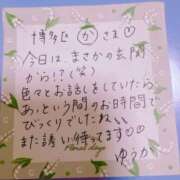 博多区 か さま♡
今日は、まさかの玄関
から!?(笑)
色々とお話をしていたら
あっという間のお時間で
びっくりでしたね
また誘い待ってます♡♡
ゆうか